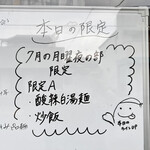 本日の限定
7月の月曜夜の部
限定
限定A
・酸辣白湯麺
・炒飯